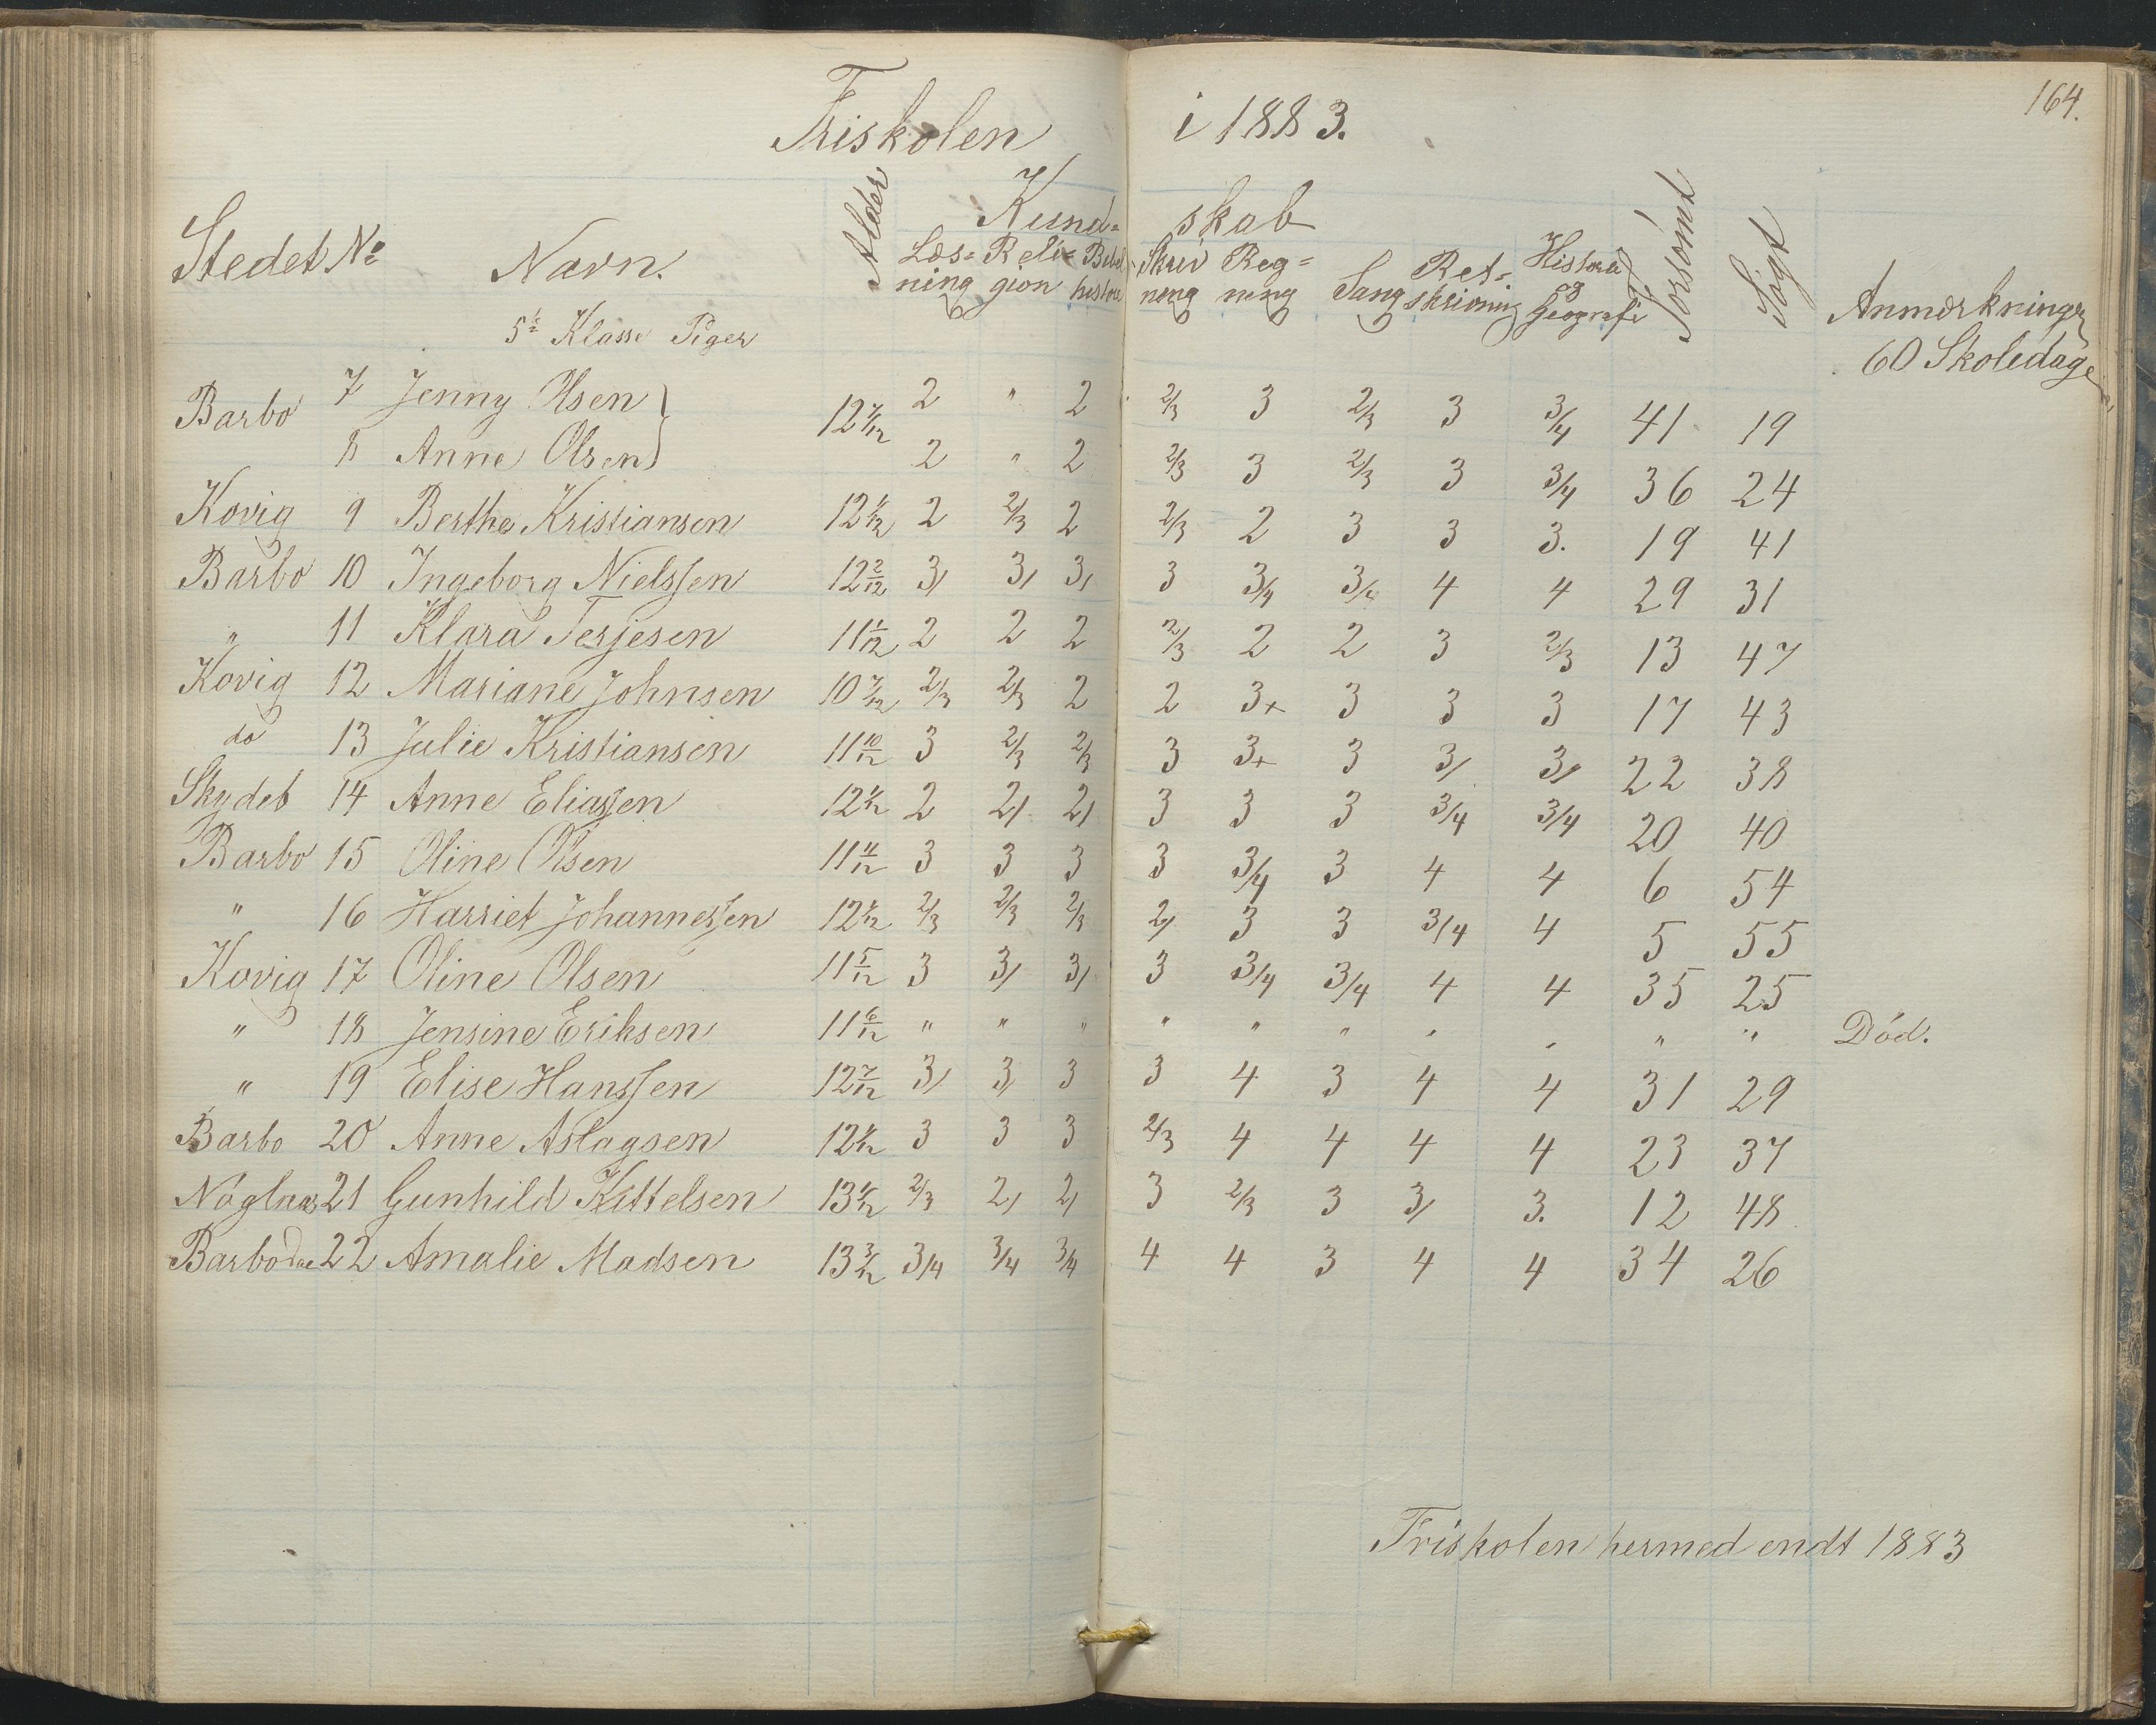 164.
Friskolen i 1883.
Stedet No Navn. Alder Kund= skab Forsömt Sögt Anmærkninger
Læs= ning Reli= gion Bibel histore Skriv ning Reg= ning Sang Ret= skrivning Historie og Geografi
5te Klasse Piger 60 Skoledage
Barbo 7 Jenny Olsen } 12 7/12 2 " 2 2/3 3 2/3 3 3/4 41 19
8 Anne Olsen 2 " 2 2/3 3 2/3 3 3/4 36 24
Kovig 9 Berthe Kristiansen 12 2 2/3 2 2/3 2 3 3 3. 19 41
Barbo 10 Ingeborg Nielssen 12 2/12 3/ 3/ 3/ 3 3/4 3/4 4 4 29 31
" 11 Klara Terjesen 11 1/12 2 2 2 2/3 2 2 3 2/3 13 47
Kovig 12 Mariane Johnsen 10 7/12 2/3 2/3 2 2 3+ 3 3 3 17 43
do 13 Julie Kristiansen 11 10/12 3 2/3 2/3 3 3+ 3 3/ 3/ 22 38
Skydeb 14 Anne Eliassen 12 2 2/ 2/ 3 3 3 3/4 3/4 20 40
Barbo 15 Oline Olsen 11 11/12 3 3 3 3 3/4 3 4 4 6 54
" 16 Harriet Johannessen 12 2/3 2/3 2/3 2/ 3 3 3/4 4 5 55
Kovig 17 Oline Olsen 11 5/12 3 3/ 3/ 3 3/4 3/4 4 4 35 25
" 18 Jensine Eriksen 11 6/12 " " " " " " " " " " Död.
" 19 Elise Hanssen 12 7/12 3/ 3/ 3 3 4 3 4 4 31 29
Barbo 20 Anne Aslagsen 12 3 3 3 2/3 4 4 4 4 23 37
21 Gunhild Kittelsen 13 2/3 2/ 2/ 3 2/3 3 3/ 3. 12 48
Barbo 22 Amalie Madsen 13 3/12 3/4 3/4 3/4 4 4 3 4 4 34 26
Friskolen hermed endt 1883